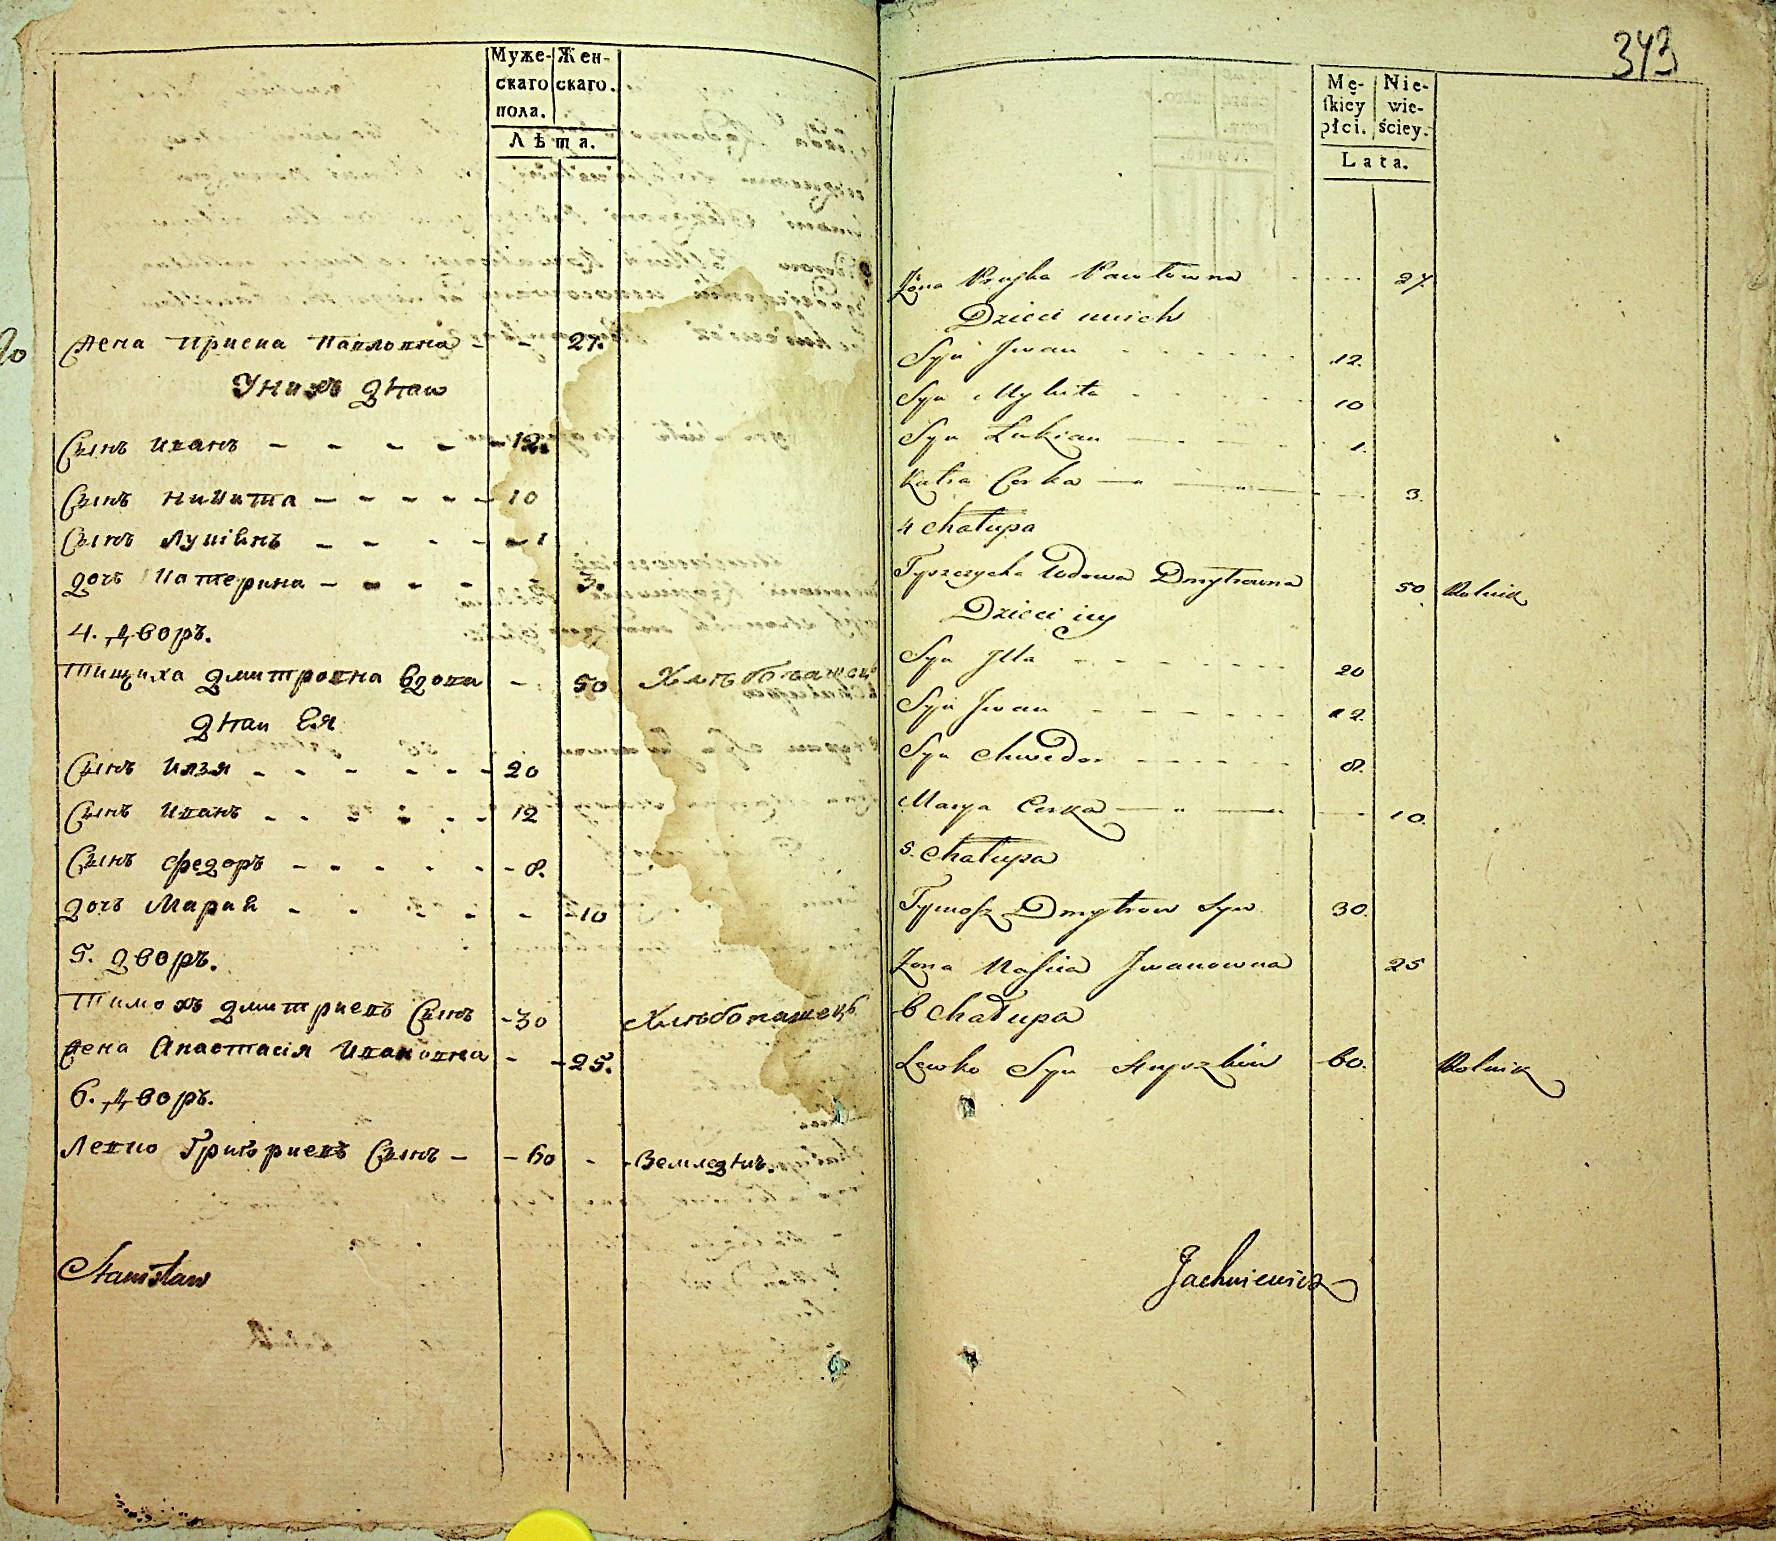 Муже- Жен-
скаго скаго.
пола.
Лѣта.
ЖенаПриска Павловна - - 27.
Унихъ дѣти
Сынъ Иванъ - - - - - 12.
Сынъ Никита - - - - - 10
Сынъ Лукіянъ - - - - - 1
дочь Катерина - - - - 3.
4. дворъ.
Тищиха дмитровна вдова - 50 Хлѣбопашецъ
дѣти Ея
Сынъ Илья - - - - - - 20
Сынъ Иванъ - - - - - - 12
Сынъ Федоръ - - - - - - 8.
дочь Мария - - - - - - 10
5. дворъ.
Тимохъ дмитриевъ Сынъ - 30 Хлѣбопашецъ
Жена Анастасія Ивановна - - 25.
6. дворъ.
Левко Григориевъ Сынъ - - 60 - Земледѣл.
Stanisław
343
Mę- Nie-
skiey wie-
płci. ściey.
Lata.
Żona Pryska Pawłowna - - - - 27.
Dzieci unich
Syn Iwan - - - - - - 12.
Syn Mykita - - - - - 10
Syn Łukian - - - - 1.
Katra Corka - - - - 3.
4 Chałupa
Tyszczycha Wdowa Dmytrowna 50 Rolnik
Dzieci iey
Syn Illa - - - - - - 20
Syn Iwan - - - - - - 12.
Syn Chwedor - - - - - 8.
Marya Corka - - - - 10.
5. Chałupa
Tymosz Dmytrow Syn 30.
Żona Nascia Iwanowna 25
6 Chałupa
Lewko Syn Hryszkiw 60. Rolnik
Jachniewicz